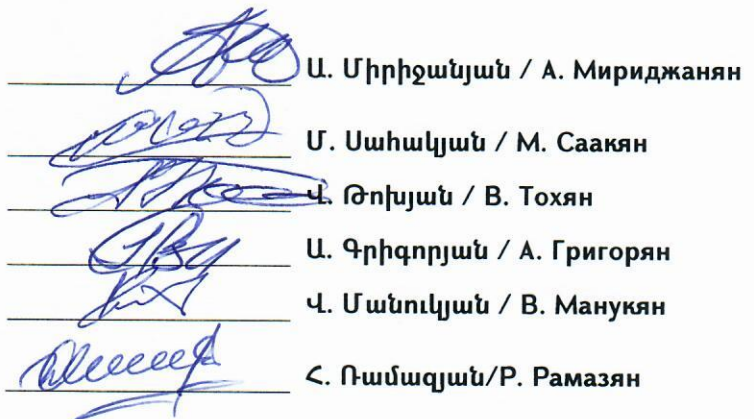 Ա. Միրիջանյան / А. Мириджанян
Մ. Սահակյան / М. Саакян
Վ. Թոխյան / В. Тохян
Ա. Գրիգորյան / А. Григорян
Վ. Մանուկյան / В. Манукян
Հ. Ռամազյան/Р. Рамазян